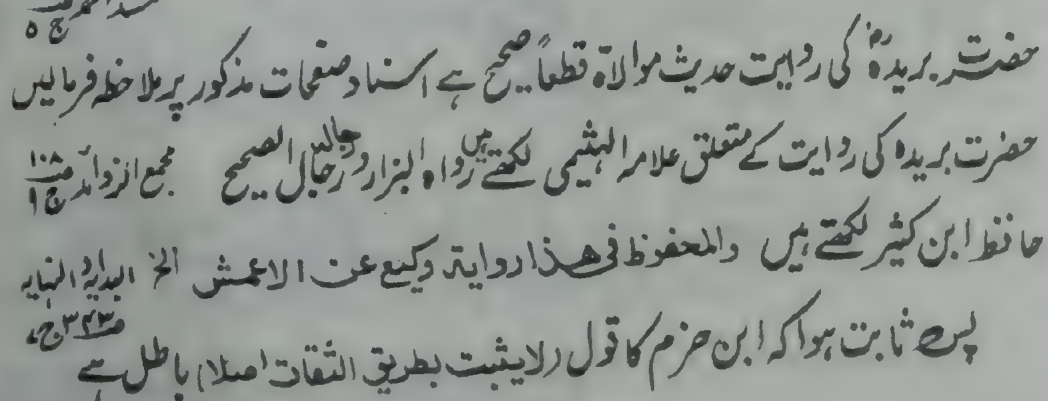 ج ۵
حضرت بریدہؓ کی روایت حدیث موالاۃ قطعاً صحیح ہے اسناد صفحات مذکور پر ملاحظہ فرمالیں
حضرت بریدہ کی روایت کے متعلق علامہ الہثیمی لکھتے ہیں رواہ البزار ورجالہ رجال الصحیح مجمع الزوائد ص۱۰۸ ج۹
حافظ ابن کثیر لکھتے ہیں والمحفوظ فی هذا روایة وکیع عن الاعمش الخ البدایہ والنہایہ
ص۳۴۳ ج۷
پس ثابت ہوا کہ ابن حزم کا قول (لا یثبت بطریق الثقات اصلا) باطل ہے